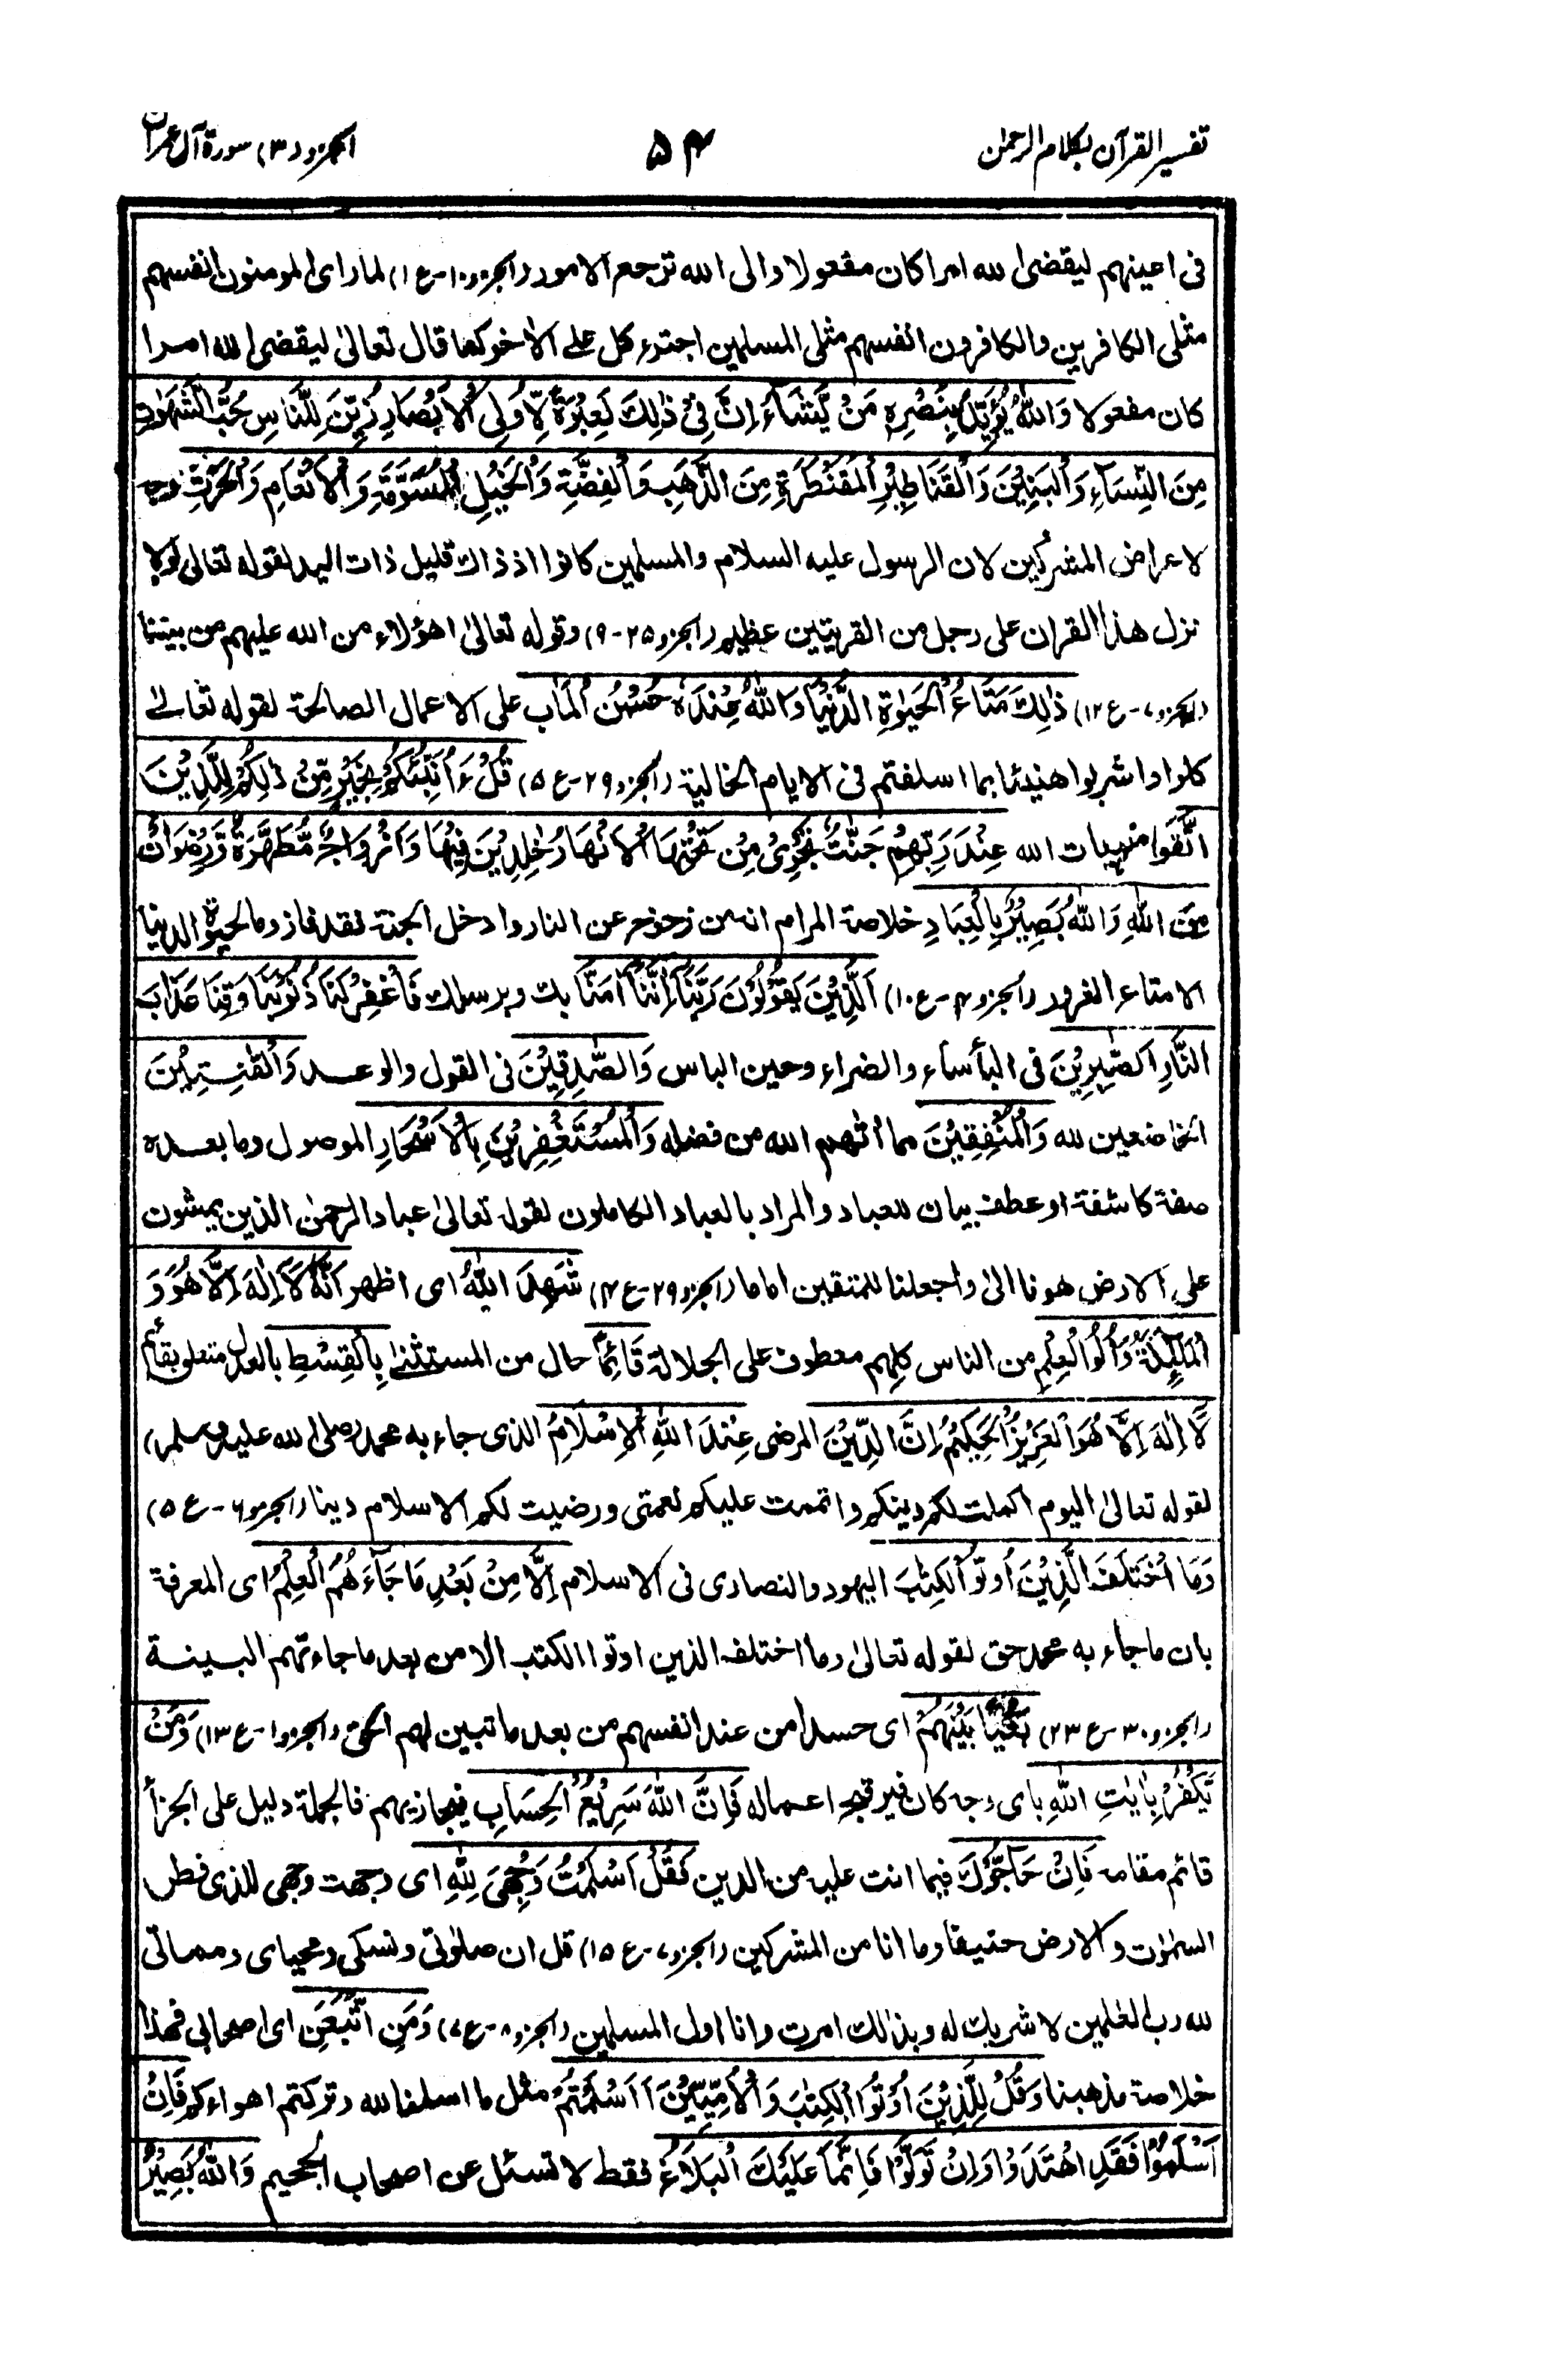 تفسیر القرآن بکلام الرحمٰن
۵۴
الجزو (۳) سورة آل عمران
فی اعینهم لیقضی الله امرا کان مفعولا والی الله ترجع الامور (الجزو ۱۰-ع ۱) لما رای المومنون انفسهم
مثلی الکافرین والکافرون انفسهم مثلی المسلمین اجترء کل علی الاٰخر کما قال تعالیٰ لیقضی الله امرا
کان مفعولا وَاللّٰهُ یُؤَیِّدُ بِنَصْرِهٖ مَنْ یَّشَآءُ اِنَّ فِیْ ذٰلِكَ لَعِبْرَةً لِّاُولِی الْاَبْصَارِ زُیِّنَ لِلنَّاسِ حُبُّ الشَّهَوٰتِ
مِنَ النِّسَآءِ وَالْبَنِیْنَ وَالْقَنَاطِیْرِ الْمُقَنْطَرَةِ مِنَ الذَّهَبِ وَالْفِضَّةِ وَالْخَیْلِ الْمُسَوَّمَةِ وَالْاَنْعَامِ وَالْحَرْثِ
لاعراض المشرکین لان الرسول علیه السلام والمسلمین کانوا اذ ذاك قلیل ذات الید لقوله تعالی لولا
نزل هذا القران علی رجل من القریتین عظیم (الجزو ۲۵-۹) وقوله تعالیٰ اهؤلاء من الله علیهم من بیننا
(الجزو ۷-ع ۱۲) ذٰلِكَ مَتَاعُ الْحَیٰوةِ الدُّنْیَا وَاللّٰهُ عِنْدَهٗ حُسْنُ الْمَاٰب علی الاعمال الصالحة لقوله تعالےٰ
کلوا واشربوا هنیئا بما اسلفتم فی الایام الخالیة (الجزو ۲۹-ع ۵) قُلْ ءَاُنَبِّئُكُمْ بِخَیْرٍ مِّنْ ذٰلِكُمْ لِلَّذِیْنَ
اتَّقَوْا منهیات الله عِنْدَ رَبِّهِمْ جَنّٰتٌ تَجْرِیْ مِنْ تَحْتِهَا الْاَنْهَارُ خٰلِدِیْنَ فِیْهَا وَاَزْوَاجٌ مُّطَهَّرَةٌ وَّرِضْوَانٌ
مِّنَ اللّٰهِ وَاللّٰهُ بَصِیْرٌ بِالْعِبَادِ خلاصة المرام انه من زحزح عن النار وادخل الجنة فقد فاز وما الحیوة الدنیا
الا متاع الغرور (الجزو ۴-ع ۱۰) اَلَّذِیْنَ یَقُوْلُوْنَ رَبَّنَآ اِنَّنَآ اٰمَنَّا بك وبرسولك فَاغْفِرْ لَنَا ذُنُوْبَنَا وَقِنَا عَذَابَ
النَّارِ اَلصّٰبِرِیْنَ فی البأساء والضراء وحین الباس وَالصّٰدِقِیْنَ فی القول والوعد وَالْقٰنِتِیْنَ
الخاضعین لله وَالْمُنْفِقِیْنَ مما اٰتٰهم الله من فضله وَالْمُسْتَغْفِرِیْنَ بِالْاَسْحَارِ الموصول وما بعده
صفة کاشفة او عطف بیان للعباد والمراد بالعباد الکاملون لقوله تعالیٰ عباد الرحمٰن الذین یمشون
علی الارض هونا الیٰ واجعلنا للمتقین اماما (الجزو ۲۹-ع ۴) شَهِدَ اللّٰهُ ای اظهر اَنَّهٗ لَآ اِلٰهَ اِلَّا هُوَ وَ
الْمَلٰٓئِكَةُ وَاُولُوا الْعِلْمِ من الناس کلهم معطوف علی الجلالة قَآئِمًا حال من المستثنیٰ بِالْقِسْطِ بالعدل متعلق بقائم
لَآ اِلٰهَ اِلَّا هُوَ الْعَزِیْزُ الْحَكِیْمُ اِنَّ الدِّیْنَ المرضی عِنْدَ اللّٰهِ الْاِسْلَامُ الذی جاء به محمد (صلی الله علیه وسلم)
لقوله تعالیٰ الیوم اکملت لکم دینکم واتممت علیکم نعمتی ورضیت لکم الاسلام دینا (الجزو ۶-ع ۵)
وَمَا اخْتَلَفَ الَّذِیْنَ اُوْتُوا الْكِتٰبَ الیهود والنصاری فی الاسلام اِلَّا مِنْ بَعْدِ مَا جَآءَهُمُ الْعِلْمُ ای المعرفة
بان ما جاء به محمد حق لقوله تعالیٰ وما اختلف الذین اوتوا الکتب الا من بعد ما جاءتهم البینة
(الجزو ۳۰-ع ۲۳) بَغْیًا بَیْنَهُمْ ای حسدا من عند انفسهم من بعد ما تبین لهم الحق (الجزو ۱-ع ۱۳) وَمَنْ
یَّكْفُرْ بِاٰیٰتِ اللّٰهِ بای وجه کان فیرقبه اعماله فَاِنَّ اللّٰهَ سَرِیْعُ الْحِسَابِ فیجازیهم فالجملة دلیل علی الجزأ
قائم مقامه فَاِنْ حَآجُّوْكَ فیما انت علیه من الدین فَقُلْ اَسْلَمْتُ وَجْهِیَ لِلّٰهِ ای وجهت وجهی للذی فطر
السمٰوٰت والارض حنیفا وما انا من المشرکین (الجزو ۷-ع ۱۵) قل ان صلوٰتی ونسکی ومحیای ومماتی
لله رب العٰلمین لا شریك له وبذالك امرت وانا اول المسلمین (الجزو ۸-ع ۷) وَمَنِ اتَّبَعَنِ ای اصحابی فهذا
خلاصة مذهبنا وَقُلْ لِّلَّذِیْنَ اُوْتُوا الْكِتٰبَ وَالْاُمِّیّٖنَ ءَاَسْلَمْتُمْ مثل ما اسلمنا لله وترکتم اهواءکم فَاِنْ
اَسْلَمُوْا فَقَدِ اهْتَدَوْا وَاِنْ تَوَلَّوْا فَاِنَّمَا عَلَیْكَ الْبَلَاغُ فقط لا تسئل عن اصحاب الجحیم وَاللّٰهُ بَصِیْرٌ